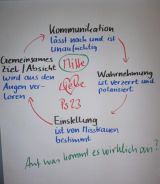 Kommunikation
lässt nach und ist
unaufrichtig
Gemeinsames
Ziel / Absicht
wird aus den
Augen ver-
loren
Mitte
Wahrnehmung
ist verzerrt und
polarisiert
Einstellung
ist von Misstrauen
bestimmt
Auf was kommt es wirklich an?